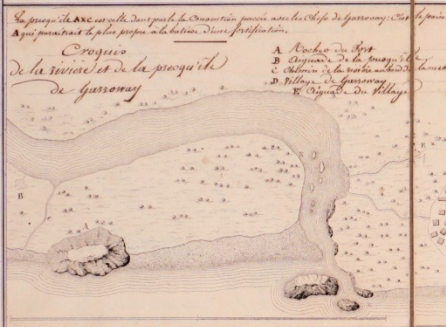 La presqu'ile AXC est celle dont parle la Convention passée avec les Chefs de Garroway: C'est le poin
A qui paraitrait le plus propre a la batisse d'une fortification.
Croquis
de la rivière et de la presqu'ile
de Garroway
A Rocher du Fort
B Aiguade de la presqu'ile
C Chemin de la rivière
D Village de Garroway
E Aiguade du Village
B
A